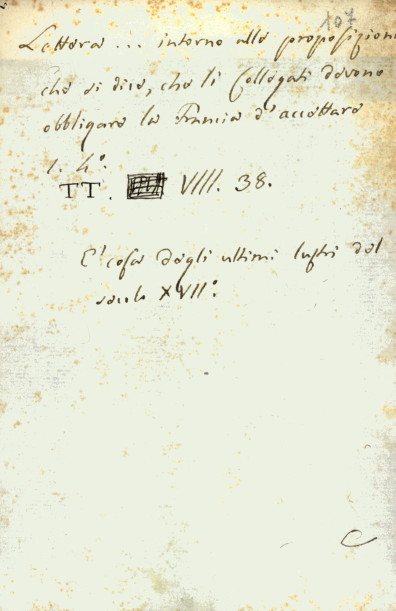 107
Lettera ... intorno alle proposizioni
che si dice, che li Collegati devono
obbligare la Francia d'accettare
1. 4°.
TT. VIII. 38.
E' cosa degli ultimi lustri del
secolo XVII°.